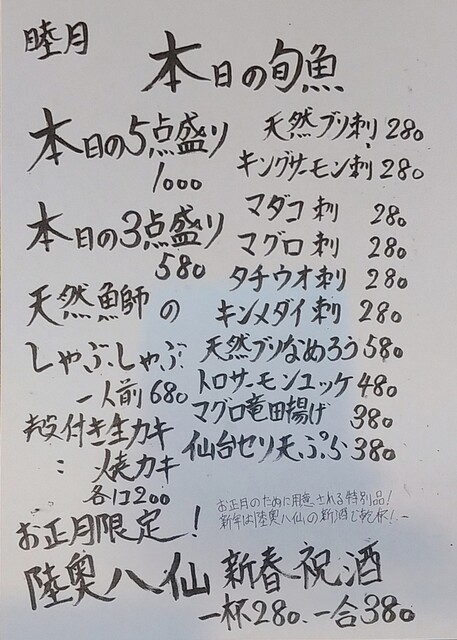 睦月
本日の旬魚
本日の5点盛り
1000
本日の3点盛り
580
天然魚師の
しゃぶしゃぶ
一人前680
殻付き生カキ
: 焼カキ
各1コ200
天然ブリ刺 280
キングサーモン刺 280
マダコ刺 280
マグロ刺 280
タチウオ刺 280
キンメダイ刺 280
天然ブリなめろう580
トロサーモンユッケ480
マグロ竜田揚げ 380
仙台セリ天ぷら380
お正月のために用意される特別品!
新年は陸奥八仙の新酒で乾杯!
お正月限定!
陸奥八仙 新春祝酒
一杯280、一合380